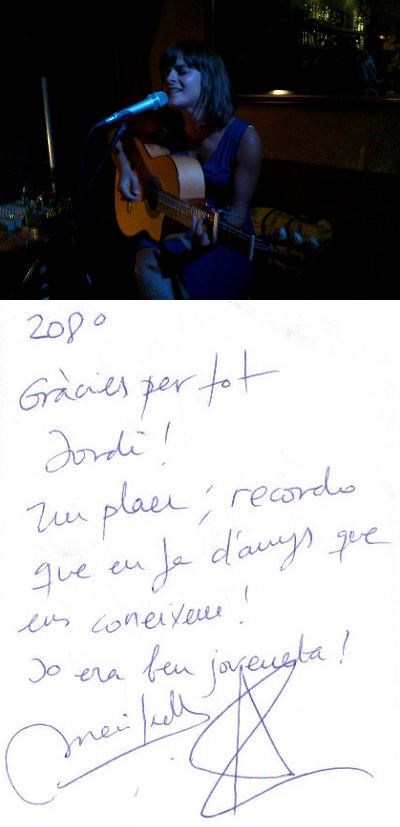 208º
Gràcies per tot
Jordi!
Un plaer; recordo
que en fa d'anys que
ens coneixem!
Jo era ben joveneta!